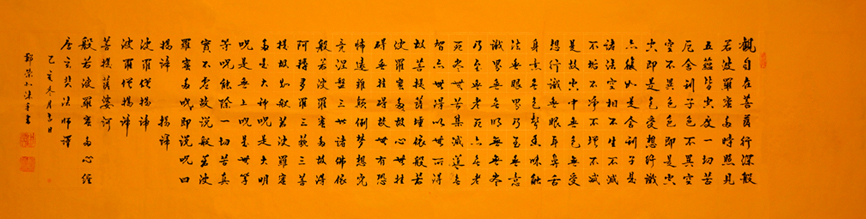 觀自在菩薩行深般
若波羅蜜多時照見
五蘊皆空度一切苦
厄舍利子色不異空
空不異色色即是空
空即是色受想行識
亦復如是舍利子是
諸法空相不生不滅
不垢不淨不增不減
是故空中無色無受
想行識無眼耳鼻舌
身意無色聲香味觸
法無眼界乃至無意
識界無無明亦無
乃至無老死亦無老
死盡無苦集滅道無
智亦無得以無所得
故菩提薩埵依般若
波羅蜜多故心無罣
礙無罣礙故無有恐
怖遠離顛倒夢想究
竟涅槃三世諸佛依
般若波羅蜜多故得
阿耨多羅三藐三菩
提故知般若波羅蜜
多是大神咒是大明
咒是無上咒是無等
等咒能除一切苦真
實不虛故說般若波
羅蜜多咒即說咒曰
揭諦 揭諦
波羅僧揭諦
波羅僧揭諦
菩提薩婆訶
般若波羅蜜多心經
唐玄奘法師譯
己亥冬月吉日